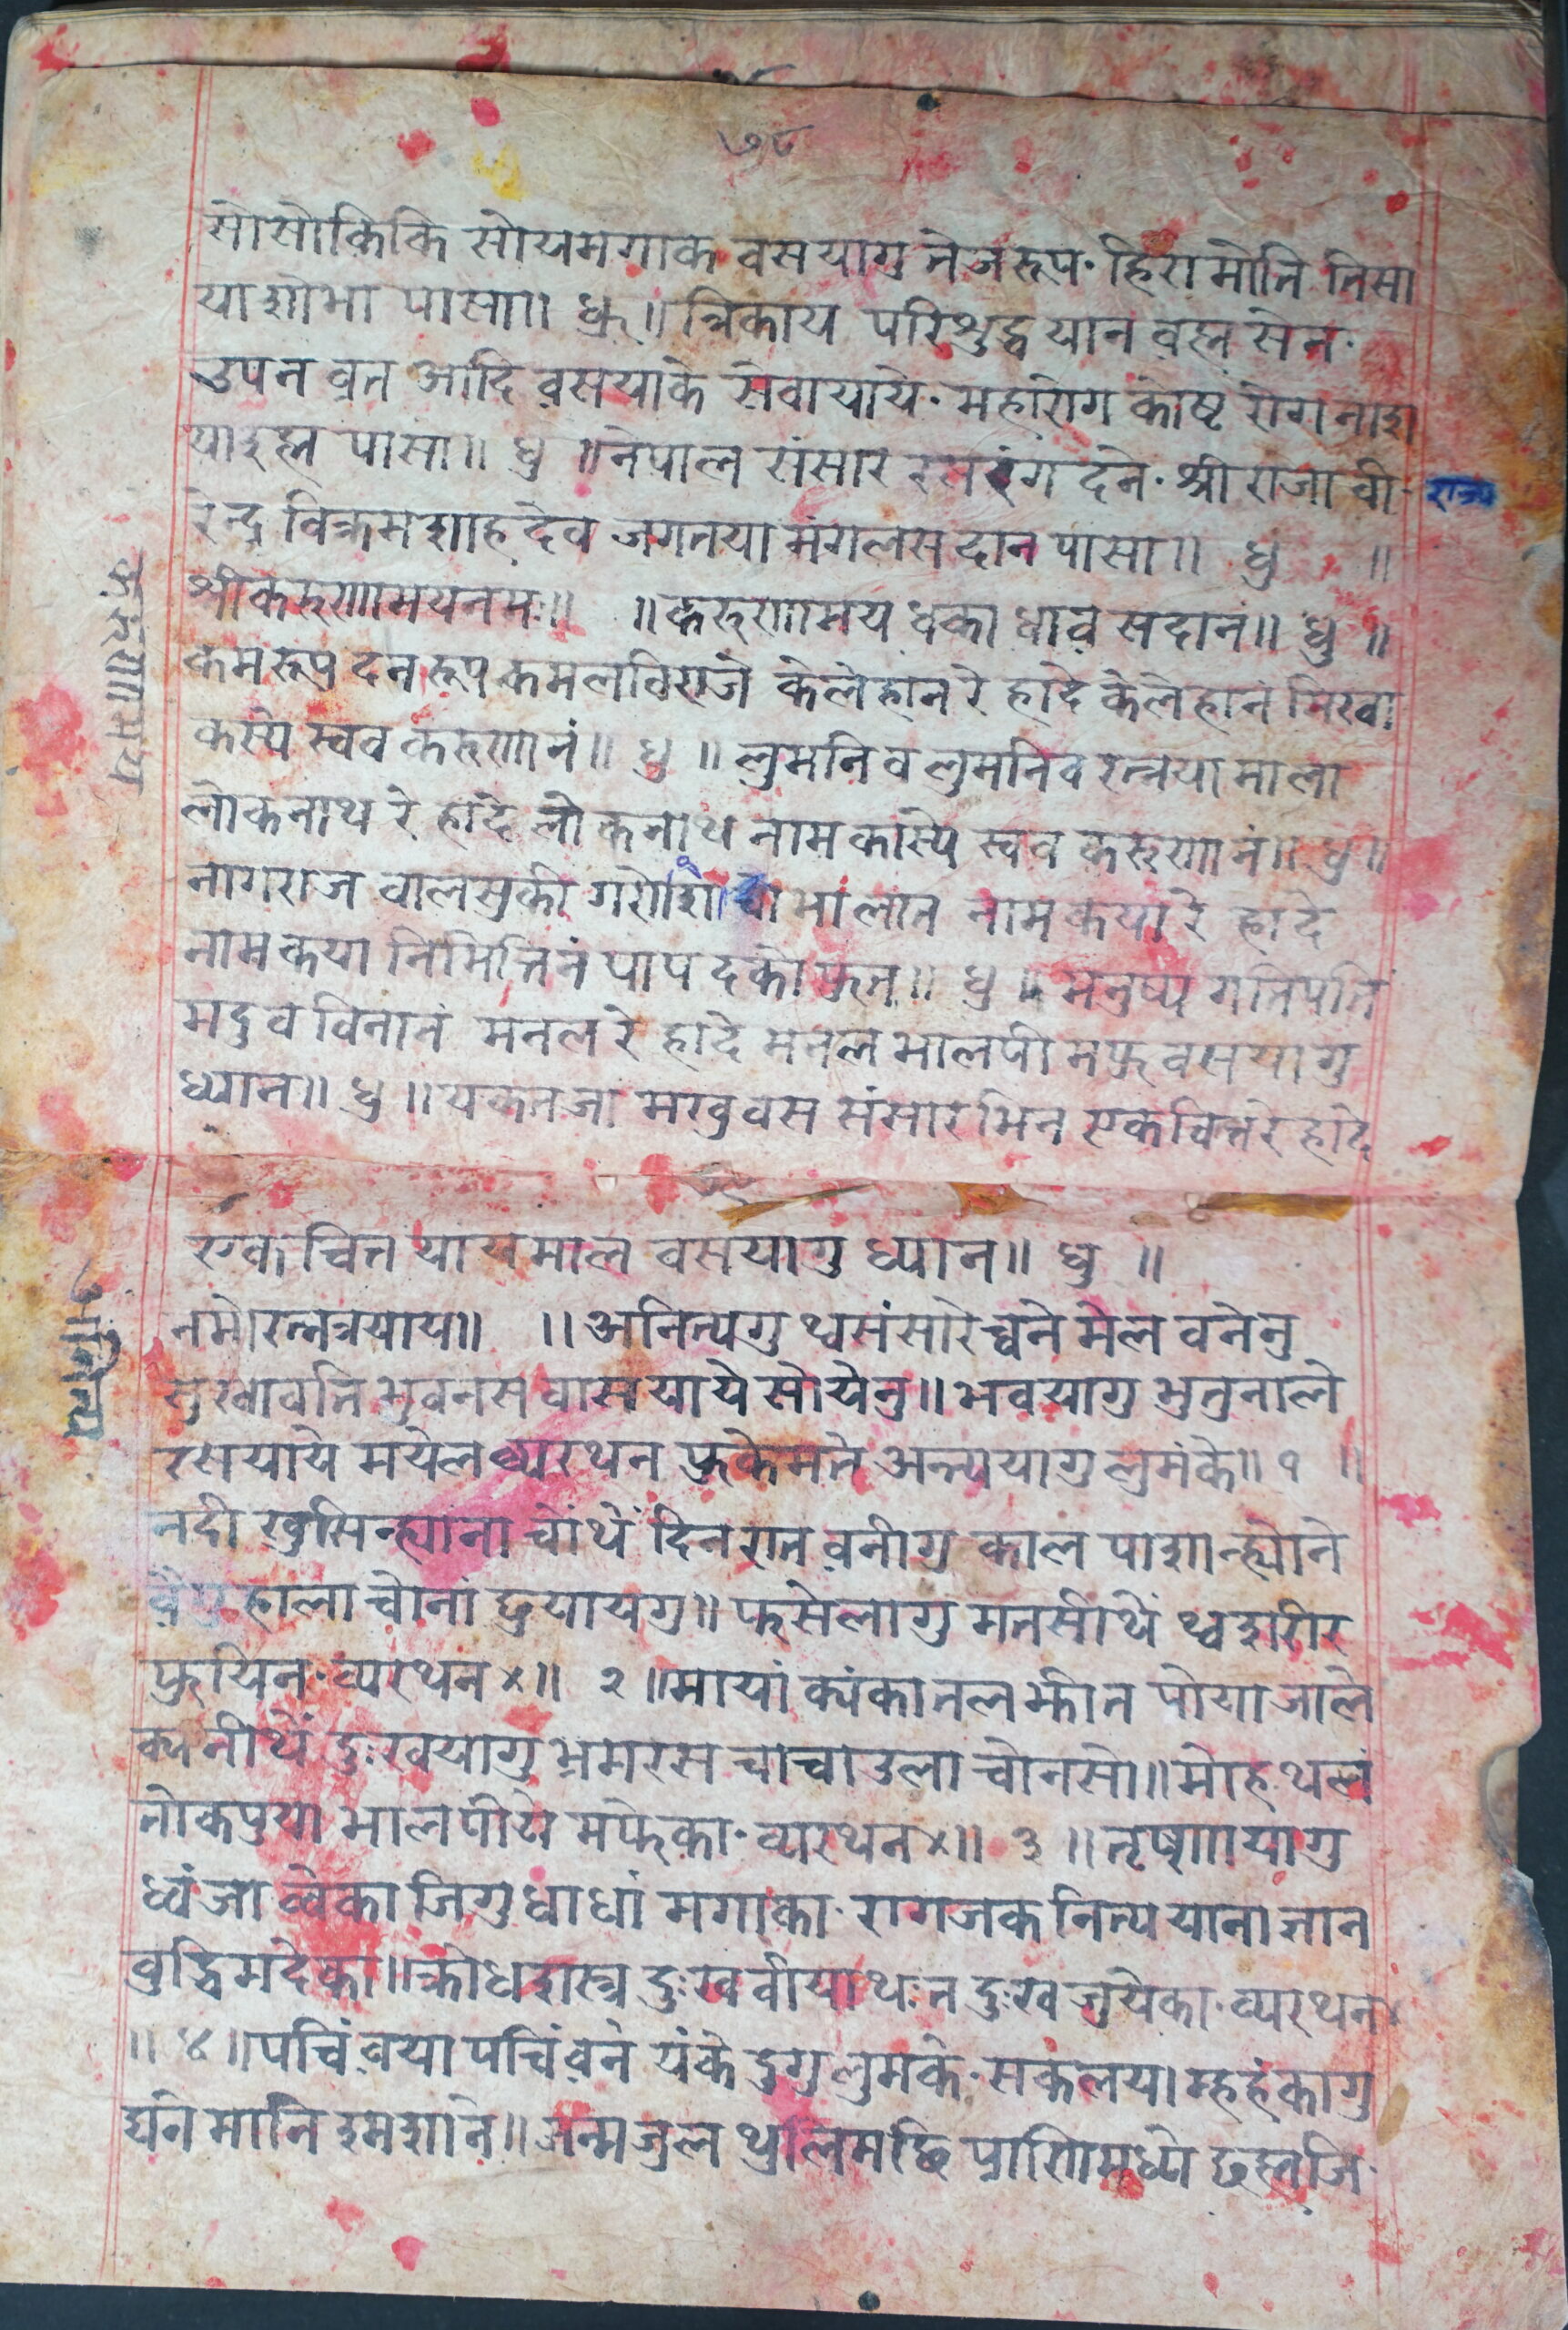 ७८
सोसोकिकि सोयमगाक वसयागु तेजरूप· हिरामोति तिसा
याशोभा पासा॥ ध्रु॥ त्रिकाय परिशुद्ध यान वह्म सेन·
उपन व्रत आदि वसयाके सेवायाये· महारोग कोष्ट रोग नाश
याइह्म पासा॥ ध्रु ॥ नेपाल संसार रस रंग दने· श्री राजा वी
राजा
रेन्द्र विक्रमशाहदेव जगतया मंगलस दान पासा॥ ध्रु ॥
श्रीकरुणामयनमः॥ ॥करुणामय धका धाव सदानं॥ ध्रु ॥
करुणामय
कमरूप्र दन रूप कमलविराजे केलेहान रे हादे केलेहानं निखा
कस्ये स्वव करुणानं॥ ध्रु ॥ लुमनिव लुमनिव रत्नया माला
लोकनाथ रे हादे लोकनाथ नामकास्ये स्वव करुणानं॥ ध्रु॥
नागराज वालसुकी गणेश भालान नामकया रे हादे
नामकया निमित्तिनं पाप दको फुत॥ ध्रु ॥ मनुष्य गतिपति
मदुव विनानं मनल रे हादे मनल भालपी मफु वसयागु
ध्यान॥ ध्रु ॥ यकतजा मखुवस संसारभिन एकचित्त रे हादे
एकचित्त यायमाल वसयागु ध्यान॥ ध्रु ॥
नमो रत्नत्रयाय॥ ॥अनित्यगु थ्वसंसारे च्वने मेल वनेनु
अनित्य
सुखावति भुवनस वासयाये सोयेनु॥ भवयागु भुतुनाले
रसयाये मयेल व्यरथन फुकेमते अन्त्ययागु लुमंके॥ १ ॥
नदी खुसि न्ह्याना चोंथें दिनरात वनीगु काल पाशा न्ह्योने
हाला चोना छुयायगु॥ फसेलागु मतसीथें थ्वशरीर
फुयिन· व्यरथन×॥ २ ॥ मायां क्यंका तल झीत पोया जाले
क्यनीथें दुःखयागु भ्रमरस चाचाउला चोनसो॥ मोह थलं
तोकपुया भालपीये मफेका· व्यरथन×॥ ३ ॥ तृष्णायागु
ध्वंजा ब्वेका जिगु धाधां मगाका· रागजक नित्य याना ज्ञान
बुद्धि मदेका॥ क्रोध शस्त्र दुःख वीयाथःत दुःख जुयेका· व्यरथन×
॥ ४ ॥ पचिं वया पचिं वने यंके दुगु लुमंके· सकलया म्हहंकागु
द्यने मानि श्मशाने॥ जन्म जुल थुलिमछि प्राणिमध्ये छह्मजि·